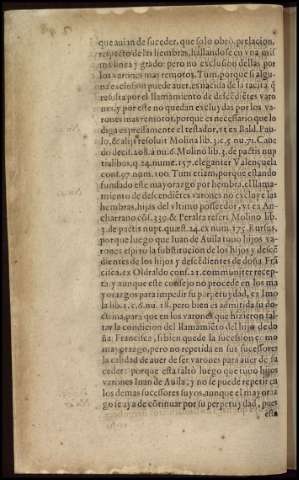 que auian de suceder, que solo obrò prelacion,
respecto de las hembras, hallandose en vna mis
ma linea y grado: pero no exclusion dellas por
los varones mas remotos. Tum, porque si algu
na exclusion puede auer, es nacida de la tacita q̃
resulta por el llamamiento de descẽdiẽtes varo
nes, y por este no quedan excluydas por los va-
rones mas remotos, porque es necessario que lo
diga expressamente el testador, vt ex Bald. Paulo,
& alijs resoluit Molina lib. 3. c. 5. nu. 71. Cane
do decis. 208. nu. 6. Molino lib. 3. de pactis nup
tialibus, q. 24. nume. 157. eleganter Valençuela
cons. 97. num. 100. Tum etiam, porque estando
fundado este mayorazgo por hembra, el llama-
miento de descendiẽtes varones no excluye las
hembras, hijas del vltimo posseedor, vt ex An-
charrano cõs. 339. & Peralta refert Molino lib.
3. de pactis nupt. quæst. 24. ex num. 175. Rursus,
porque luego que Iuan de Auila tuuo hijos va-
rones espirò la substitucion de los hijos y descẽ
dientes de los hijos y descẽdientes de doña Frã
cisca, ex Oldraldo cons. 21. communiter recep-
ta, y aunque este consejo no procede en los ma
yorazgos para impedir su perpetuydad, ex Imo
la lib. 1. c. 6. nu. 18. pero bien es admitida su do
ctrina, para que en los varones que hizieron fal-
tar la condicion del llamamiẽto del hijo de do
ña Francisca, si bien quede la sucession como
mayorazgo, pero no repetida en sus successores
la calidad de auer de ser varones para auer de su
ceder: porque esta faltò luego que tuuo hijos
varones Iuan de Auila, y no se puede repetir en
los demas sucessores suyos, aunque el mayoraz
go se aya de cõtinuar por su perpetuydad, pues
esta